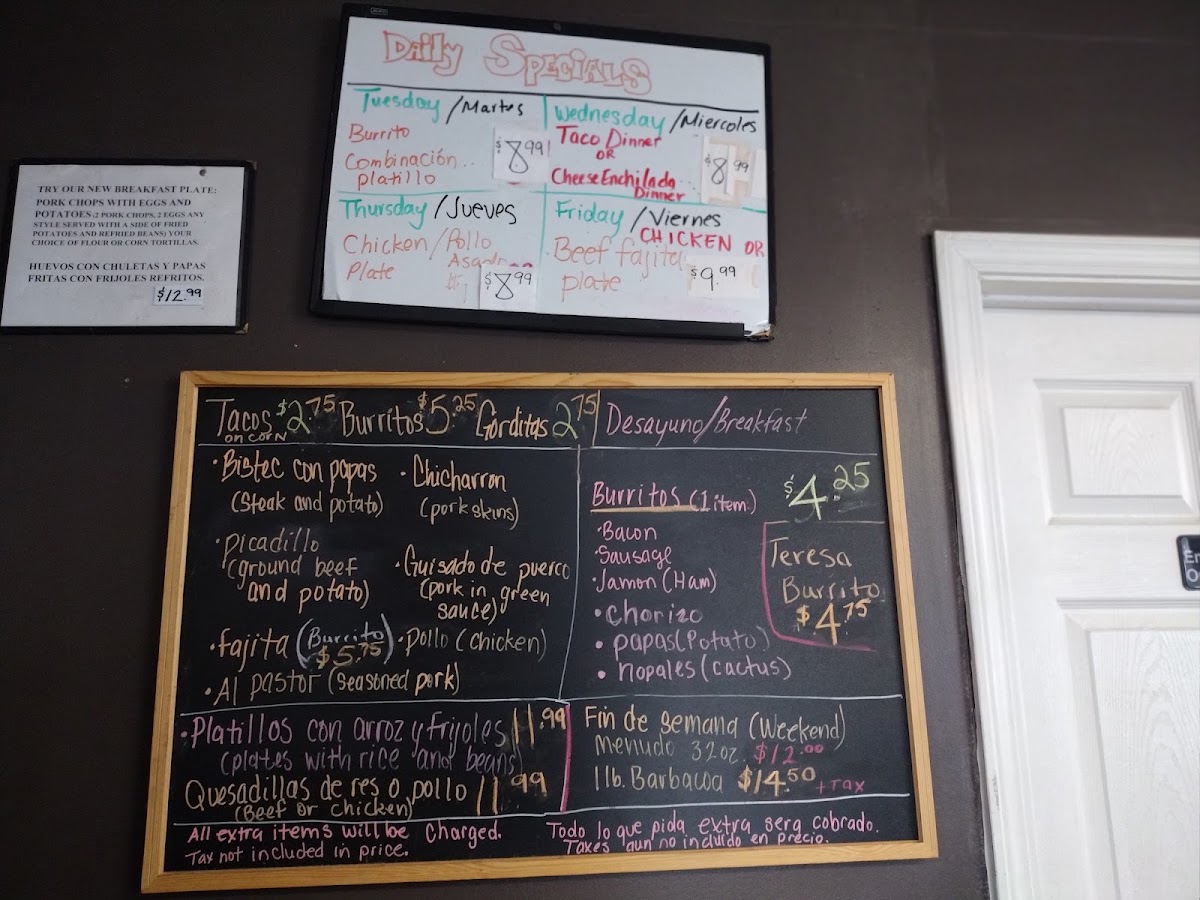 TRY OUR NEW BREAKFAST PLATE:
PORK CHOPS WITH EGGS AND
POTATOES (2 PORK CHOPS, 2 EGGS ANY
STYLE SERVED WITH A SIDE OF FRIED
POTATOES AND REFRIED BEANS) YOUR
CHOICE OF FLOUR OR CORN TORTILLAS.
HUEVOS CON CHULETAS Y PAPAS
FRITAS CON FRIJOLES REFRITOS.
$12.99
Daily Specials
Tuesday /Martes
Burrito
Combinación..
platillo
$8.99
Wednesday /Miercoles
Taco Dinner
OR
Cheese Enchilada
Dinner
$8.99
Thursday /Jueves
Chicken /Pollo
Plate
$8.99
Friday /Viernes
CHICKEN OR
Beef fajita
plate
$9.99
Tacos $2.75 Burritos $5.25 Gorditas 2.75
on corn
•Bistec con papas
(Steak and potato)
•Picadillo
(ground beef
and potato)
•Fajita (Burrito
$5.75)
•Al pastor (seasoned pork)
•Chicharron
(pork skins)
•Guisado de puerco
(pork in green
sauce)
•Pollo (Chicken)
Desayuno/Breakfast
$4.25
Burritos (1 item.)
•Bacon
•Sausage
•Jamon (Ham)
•Chorizo
•papas (Potato)
•nopales (cactus)
Teresa
Burrito
$4.75
•Platillos con arroz y frijoles 11.99
(plates with rice and beans)
Quesadillas de res o pollo 11.99
(Beef or Chicken)
Fin de semana (Weekend)
Menudo 32oz. $12.00
1 lb. Barbacoa $14.50 +TAX
All extra items will be Charged.
Tax not included in price.
Todo lo que pida extra sera cobrado.
Taxes aun no incluido en precio.